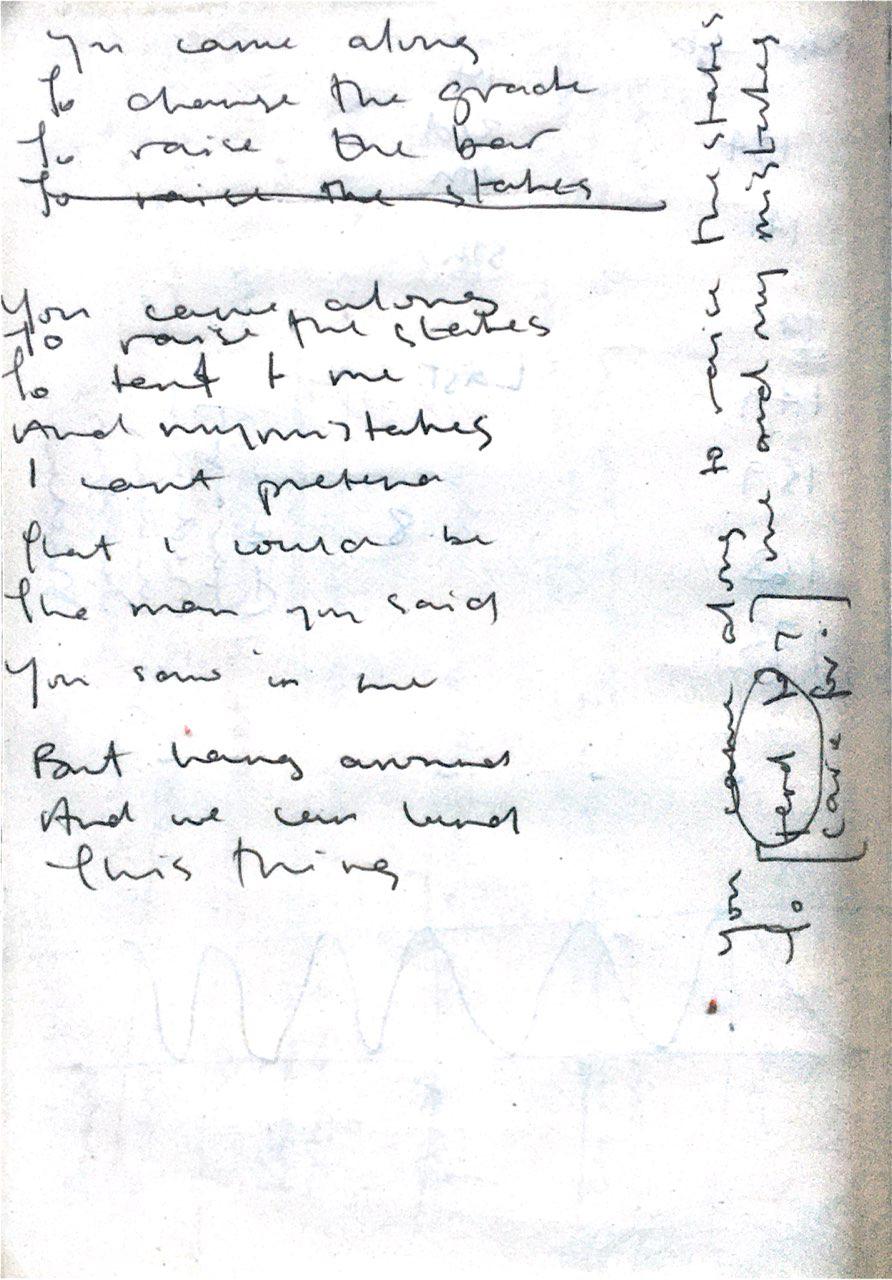 You came along
To change the grade
To raise the bar
To raise the stakes
You came along
To raise the stakes
To tend to me
And my mistakes
I can't pretend
That I could be
The man you said
You saw in me
But hang around
And we can
This thing
You came along to raise the stakes
To [tend to?] me and my mistakes
[care for.]